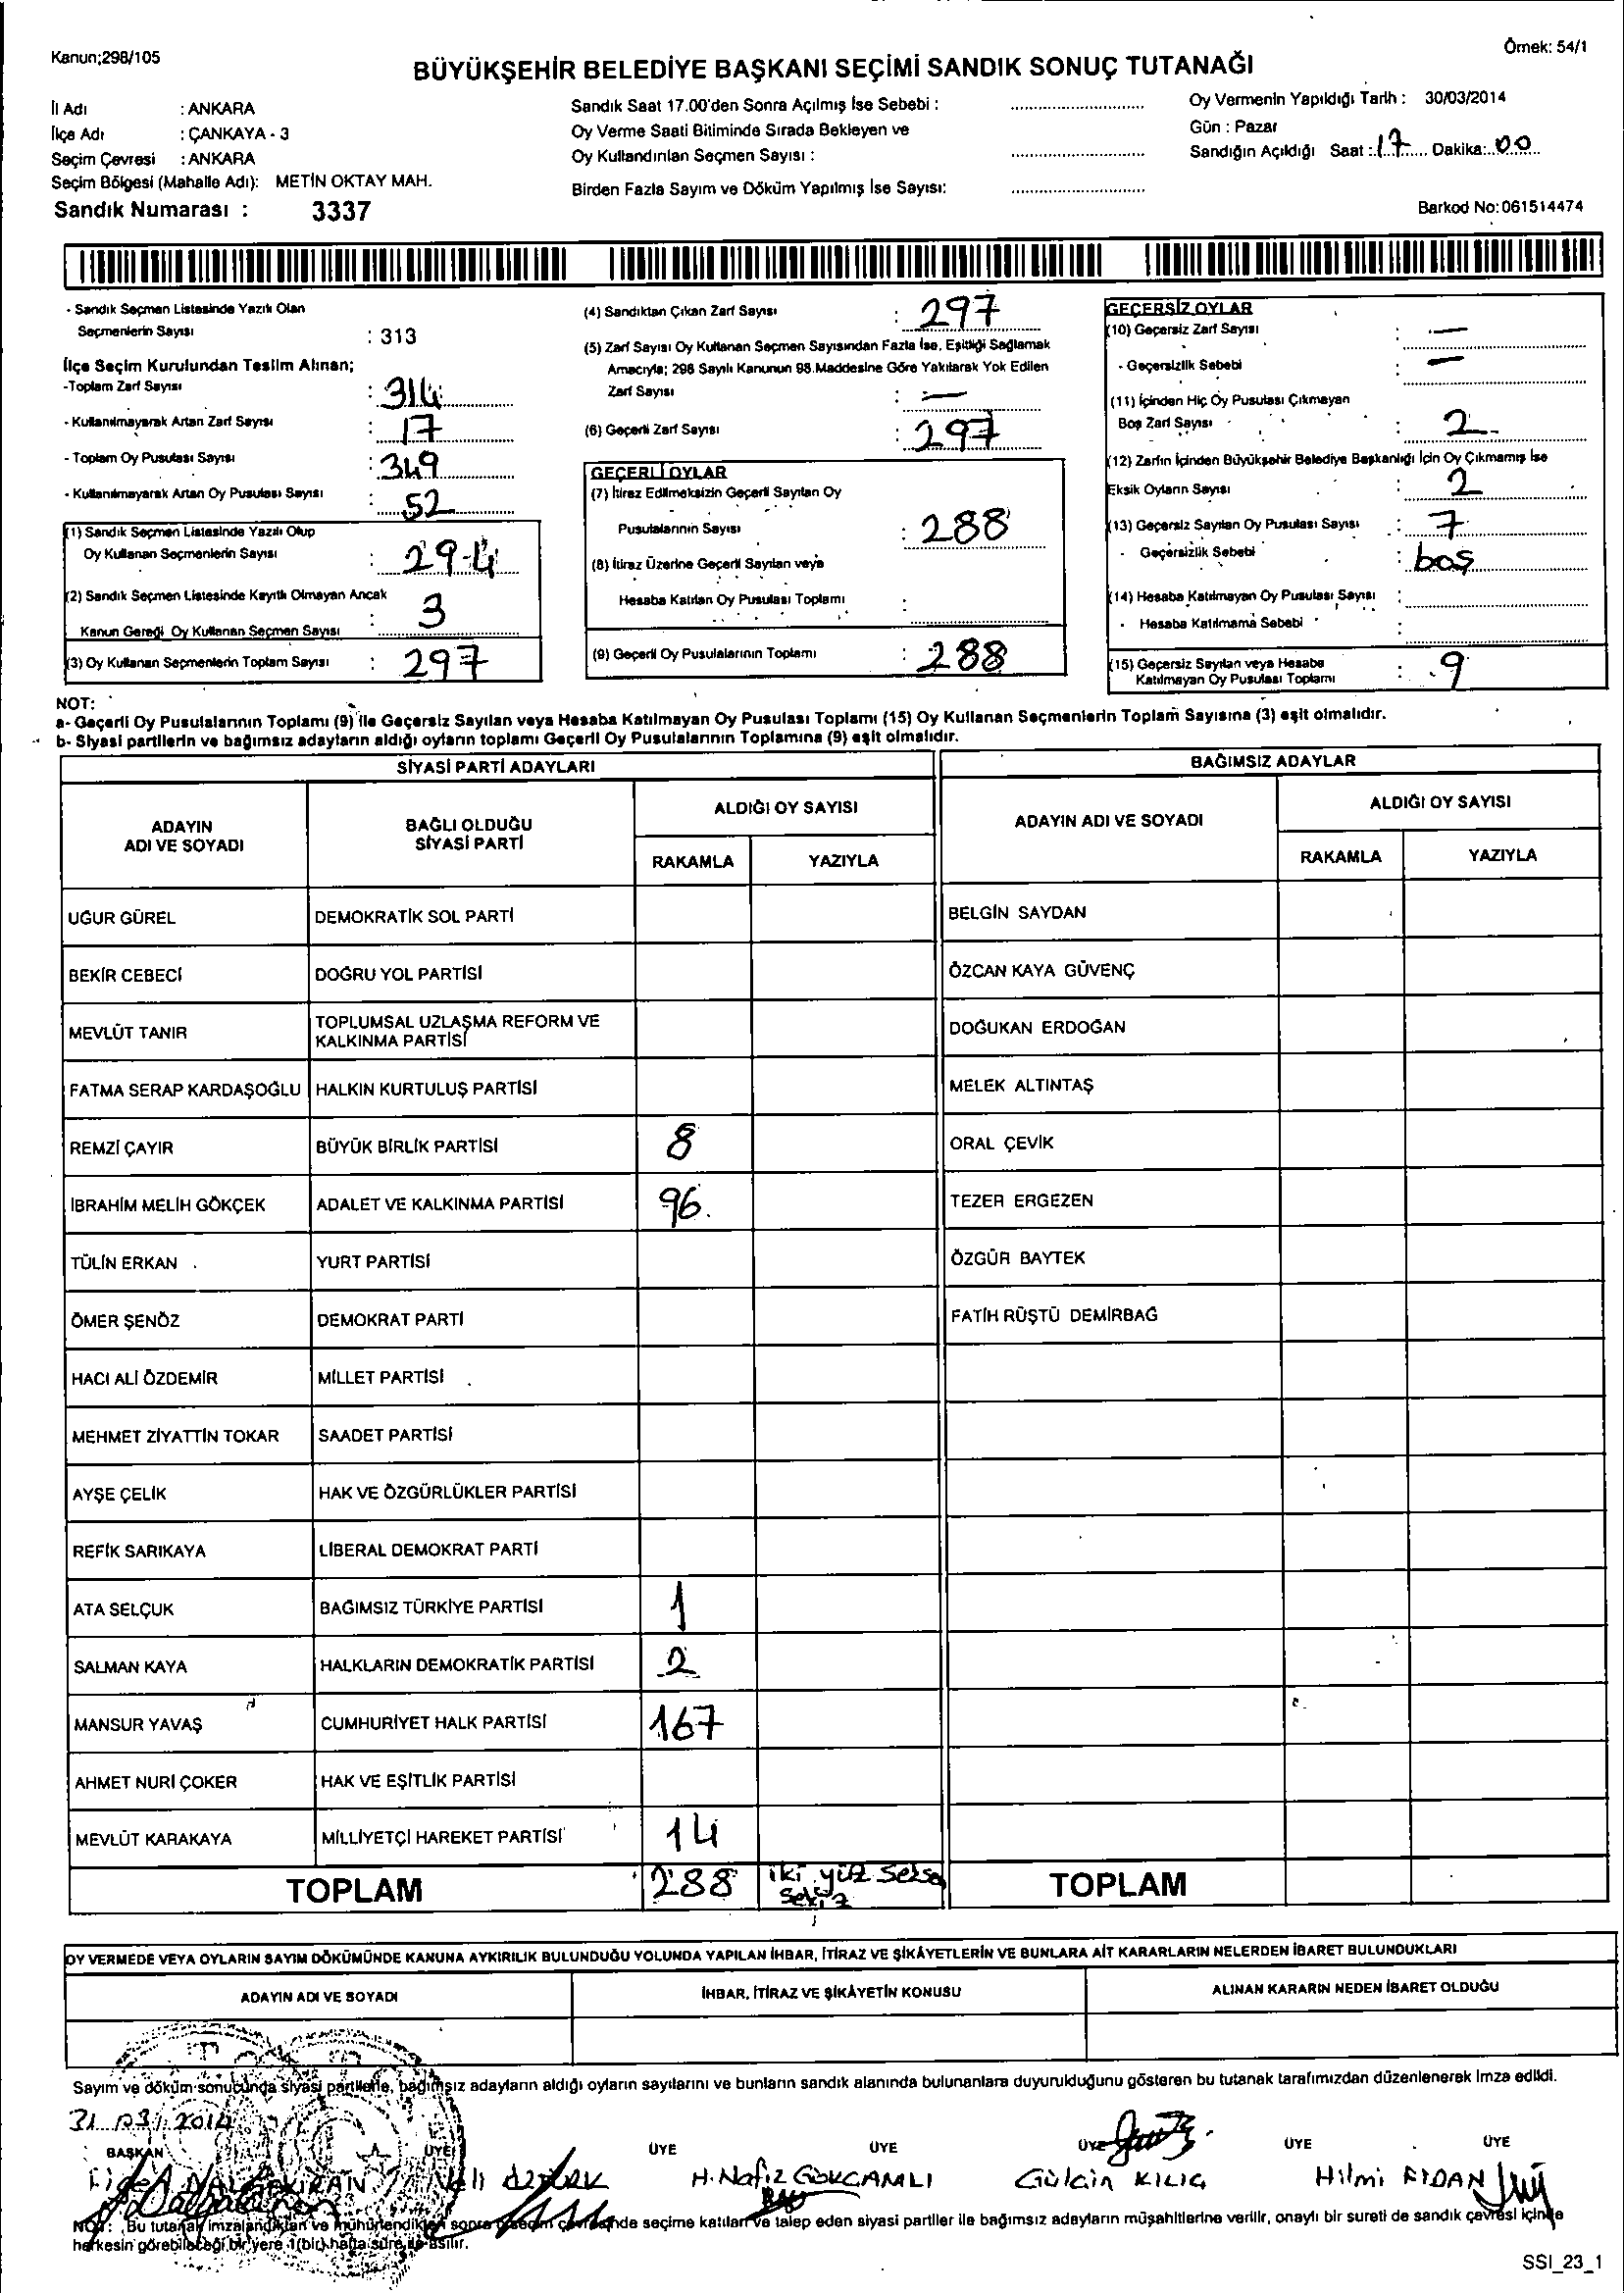 Kanun;298/105
Örnek: 54/1
BÜYÜKŞEHİR BELEDİYE BAŞKANI SEÇİMİ SANDIK SONUÇ TUTANAĞI
İl Adı : ANKARA
İlçe Adı : ÇANKAYA - 3
Seçim Çevresi : ANKARA
Seçim Bölgesi (Mahalle Adı): METİN OKTAY MAH.
Sandık Numarası : 3337
Sandık Saat 17.00'den Sonra Açılmış İse Sebebi :
Oy Verme Saati Bitiminde Sırada Bekleyen ve
Oy Kullandırılan Seçmen Sayısı :
Birden Fazla Sayım ve Döküm Yapılmış İse Sayısı:
Oy Vermenin Yapıldığı Tarih : 30/03/2014
Gün : Pazar
Sandığın Açıldığı Saat : 17 Dakika: 00
Barkod No:061514474
- Sandık Seçmen Listesinde Yazılı Olan
Seçmenlerin Sayısı : 313
İlçe Seçim Kurulundan Teslim Alınan;
-Toplam Zarf Sayısı : 314
- Kullanılmayarak Artan Zarf Sayısı : 17
- Toplam Oy Pusulası Sayısı : 349
- Kullanılmayarak Artan Oy Pusulası Sayısı : 52
(1) Sandık Seçmen Listesinde Yazılı Olup
Oy Kullanan Seçmenlerin Sayısı : 294
(2) Sandık Seçmen Listesinde Kayıtlı Olmayan Ancak
Kanun Gereği Oy Kullanan Seçmen Sayısı : 3
(3) Oy Kullanan Seçmenlerin Toplam Sayısı : 297
(4) Sandıktan Çıkan Zarf Sayısı : 297
(5) Zarf Sayısı Oy Kullanan Seçmen Sayısından Fazla İse, Eşitliği Sağlamak
Amacıyla; 298 Sayılı Kanunun 98.Maddesine Göre Yakılarak Yok Edilen
Zarf Sayısı : —
(6) Geçerli Zarf Sayısı : 297
GEÇERLİ OYLAR
(7) İtiraz Edilmeksizin Geçerli Sayılan Oy
Pusulalarının Sayısı : 288
(8) İtiraz Üzerine Geçerli Sayılan veya
Hesaba Katılan Oy Pusulası Toplamı :
(9) Geçerli Oy Pusulalarının Toplamı : 288
GEÇERSİZ OYLAR
(10) Geçersiz Zarf Sayısı : —
- Geçersizlik Sebebi : —
(11) İçinden Hiç Oy Pusulası Çıkmayan
Boş Zarf Sayısı : 2
(12) Zarfın İçinden Büyükşehir Belediye Başkanlığı İçin Oy Çıkmamış İse
Eksik Oyların Sayısı : 2
(13) Geçersiz Sayılan Oy Pusulası Sayısı : 7
- Geçersizlik Sebebi : boş
(14) Hesaba Katılmayan Oy Pusulası Sayısı :
- Hesaba Katılmama Sebebi :
(15) Geçersiz Sayılan veya Hesaba
Katılmayan Oy Pusulası Toplamı : 9
NOT:
a- Geçerli Oy Pusulalarının Toplamı (9) ile Geçersiz Sayılan veya Hesaba Katılmayan Oy Pusulası Toplamı (15) Oy Kullanan Seçmenlerin Toplam Sayısına (3) eşit olmalıdır.
b- Siyasi partilerin ve bağımsız adayların aldığı oyların toplamı Geçerli Oy Pusulalarının Toplamına (9) eşit olmalıdır.
SİYASİ PARTİ ADAYLARI
BAĞIMSIZ ADAYLAR
ADAYIN
ADI VE SOYADI
BAĞLI OLDUĞU
SİYASİ PARTİ
ALDIĞI OY SAYISI
RAKAMLA YAZIYLA
ADAYIN ADI VE SOYADI
ALDIĞI OY SAYISI
RAKAMLA YAZIYLA
UĞUR GÜREL DEMOKRATİK SOL PARTİ BELGİN SAYDAN
BEKİR CEBECİ DOĞRU YOL PARTİSİ ÖZCAN KAYA GÜVENÇ
MEVLÜT TANIR TOPLUMSAL UZLAŞMA REFORM VE
KALKINMA PARTİSİ DOĞUKAN ERDOĞAN
FATMA SERAP KARDAŞOĞLU HALKIN KURTULUŞ PARTİSİ MELEK ALTINTAŞ
REMZİ ÇAYIR BÜYÜK BİRLİK PARTİSİ 8 ORAL ÇEVİK
İBRAHİM MELİH GÖKÇEK ADALET VE KALKINMA PARTİSİ 96 TEZER ERGEZEN
TÜLİN ERKAN YURT PARTİSİ ÖZGÜR BAYTEK
ÖMER ŞENÖZ DEMOKRAT PARTİ FATİH RÜŞTÜ DEMİRBAĞ
HACI ALİ ÖZDEMİR MİLLET PARTİSİ
MEHMET ZİYATTİN TOKAR SAADET PARTİSİ
AYŞE ÇELİK HAK VE ÖZGÜRLÜKLER PARTİSİ
REFİK SARIKAYA LİBERAL DEMOKRAT PARTİ
ATA SELÇUK BAĞIMSIZ TÜRKİYE PARTİSİ 1
SALMAN KAYA HALKLARIN DEMOKRATİK PARTİSİ 2
MANSUR YAVAŞ CUMHURİYET HALK PARTİSİ 167
AHMET NURİ ÇOKER HAK VE EŞİTLİK PARTİSİ
MEVLÜT KARAKAYA MİLLİYETÇİ HAREKET PARTİSİ 14
TOPLAM 288 iki yüz seksa
sekiz TOPLAM
OY VERMEDE VEYA OYLARIN SAYIM DÖKÜMÜNDE KANUNA AYKIRILIK BULUNDUĞU YOLUNDA YAPILAN İHBAR, İTİRAZ VE ŞİKÂYETLERİN VE BUNLARA AİT KARARLARIN NELERDEN İBARET BULUNDUKLARI
ADAYIN ADI VE SOYADI İHBAR, İTİRAZ VE ŞİKÂYETİN KONUSU ALINAN KARARIN NEDEN İBARET OLDUĞU
Sayım ve döküm sonucunda siyasi partilerle, bağımsız adayların aldığı oyların sayılarını ve bunların sandık alanında bulunanlara duyurulduğunu gösteren bu tutanak tarafımızdan düzenlenerek imza edildi.
31.03.2014
BAŞKAN ÜYE ÜYE ÜYE ÜYE ÜYE ÜYE
H. Nafiz GÖKÇAMLI Gülçin KILIÇ Hilmi FİDAN
NOT: Bu tutanak imzalandıktan ve mühürlendikten sonra seçim çevresinde seçime katılan ve talep eden siyasi partiler ile bağımsız adayların müşahitlerine verilir, onaylı bir sureti de sandık çevresi içinde
herkesin görebileceği bir yere 1(bir) hafta süre ile asılır.
SSI_23_1